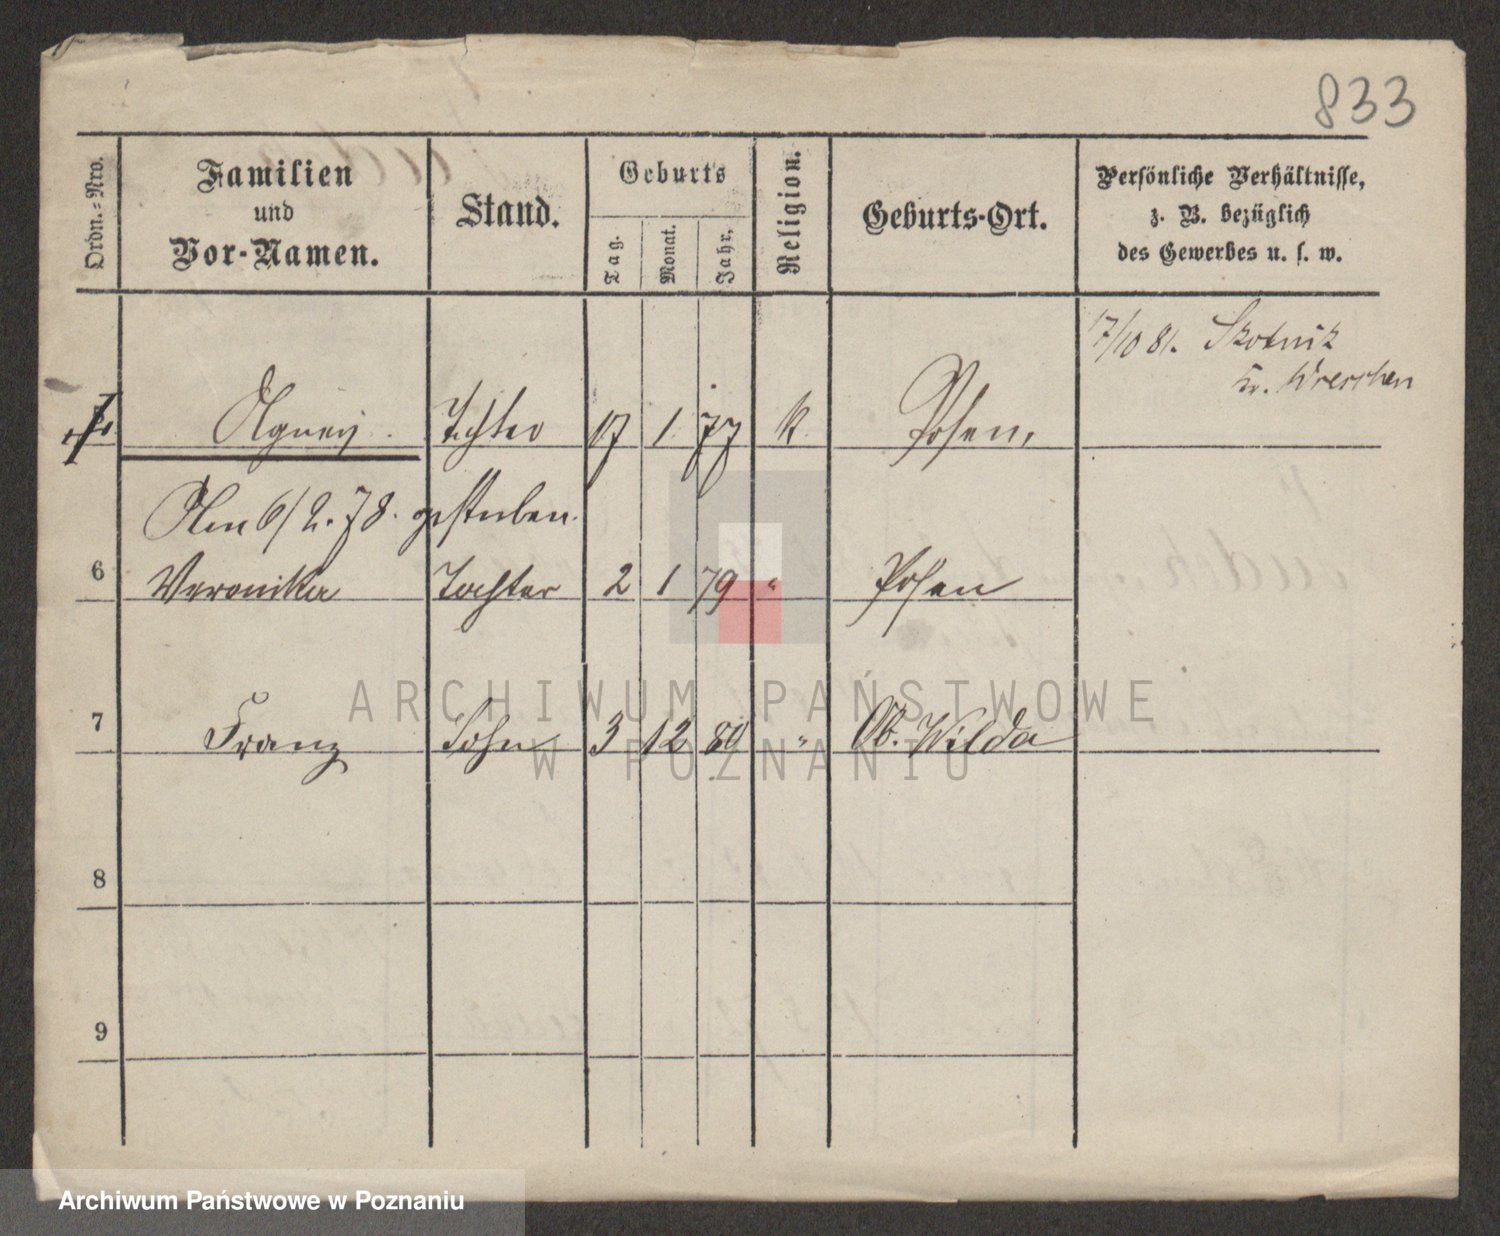 833
Ordn.-Nro.
Familien
und
Vor-Namen.
Stand.
Geburts
Tag.
Monat.
Jahr.
Religion.
Geburts-Ort.
Persönliche Verhältnisse,
z. B. bezüglich
des Gewerbes u. s. w.
17/10 81. Skotnik
Kr. Wreschen
Tochter 17 1 77 k Posen,
Am 6/2. 78. gestorben.
6 Veronika Tochter 2 1 79 " Posen
7 Franz Sohn 3 12 80 " Ob. Wilda
8
9
ARCHIWUM PAŃSTWOWE
W POZNANIU
Archiwum Państwowe w Poznaniu